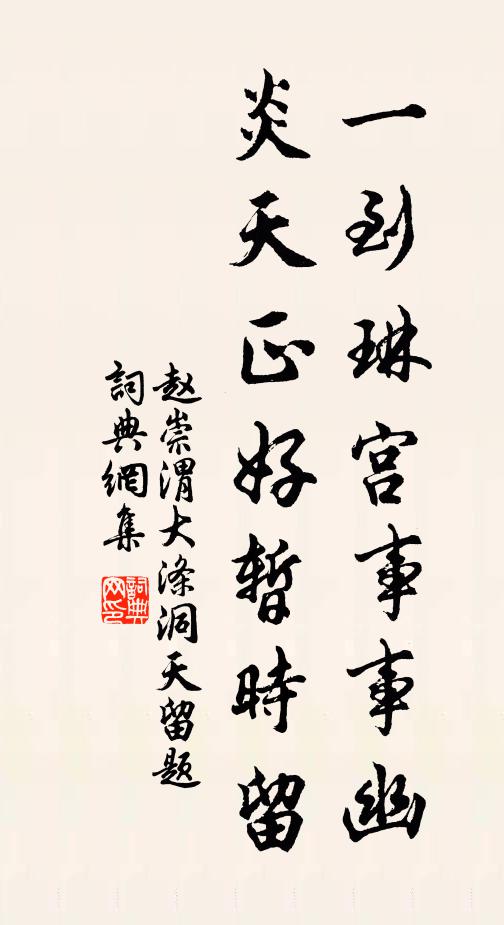 一到琳宫事事幽
炎天正好暫時留
赵崇渭大涤洞天留题
詞典網集
詞典網印